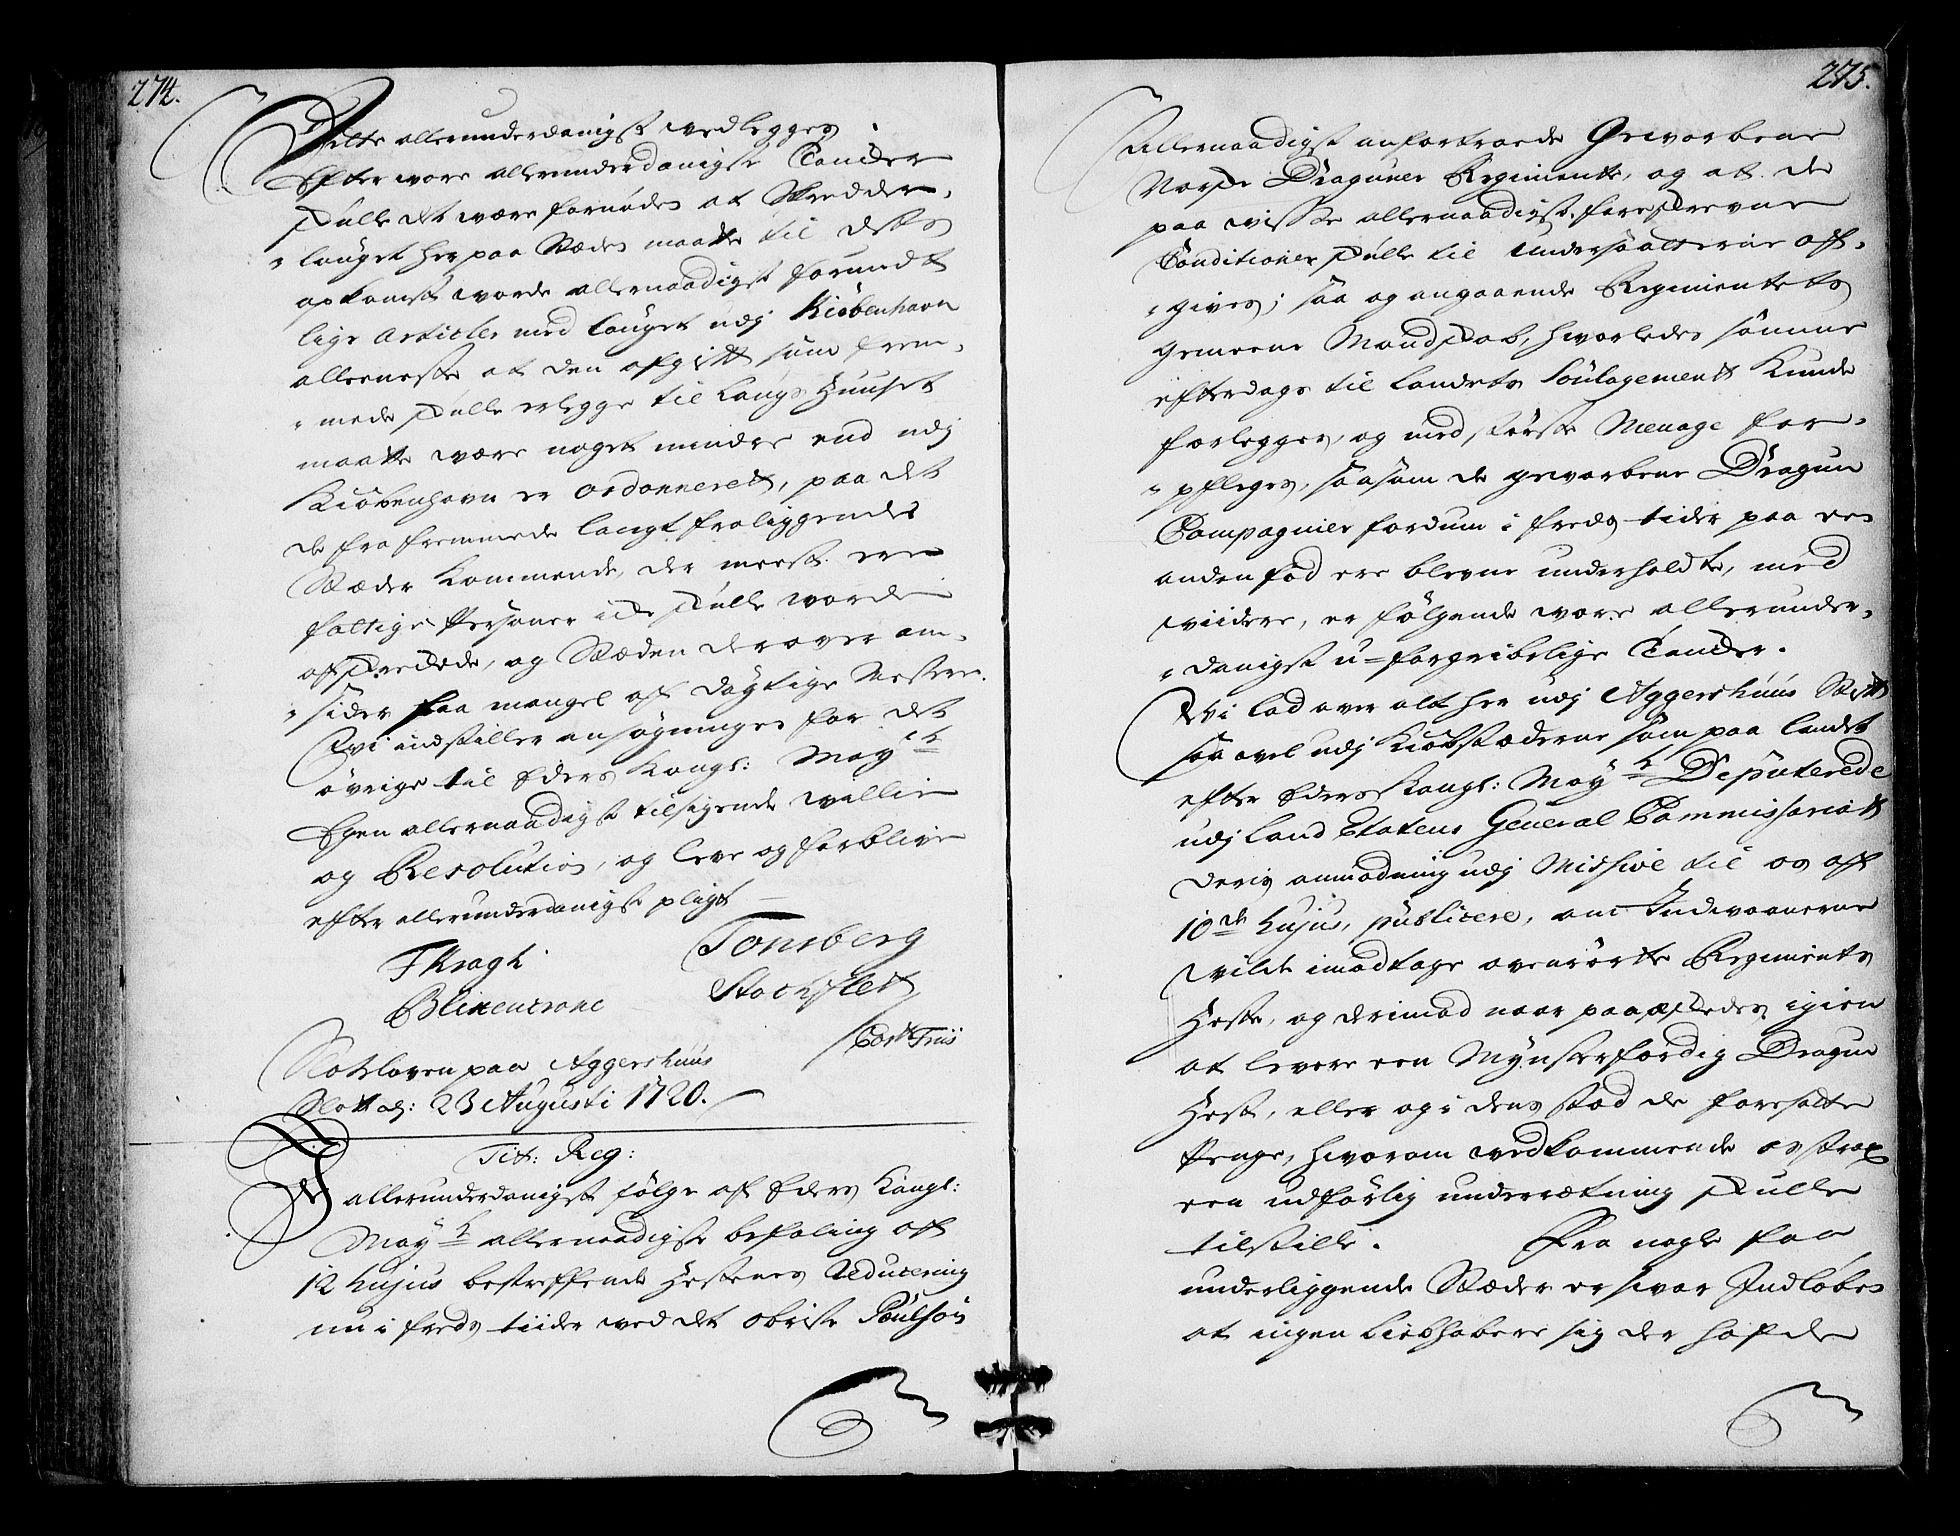 274.
dette allerunderdanigst vedlegges.
Efter vore allerunderdanigste Tancker
skulle det være fornøden at Skredder,
"lauget her paa Stæden maatte til dets
opkomst worde allernaadigst forundt
lige Articler med lauget udj Kiöbenhavn
alleneste at den afgift som frem,
"mede skulle erlegge til Laugs Huuset
maatte være noget mindre end udj
Kiöbenhavn er ordonnerett, paa det
de fra fremmede langt fraliggende
Stæder kommende, der meest ere
fattige Persohner icke skulle worde
afskreckede, og Stæden derover om,
"sider faa mangel af dygtige Mestere.
Wi indstiller ansøgningen for det
øvrige til Eders Kongl: May.ts
Egen allernaadigst tilsigende wellie
og Resolution, og leve og forblive
efter allerunderdanigst pligt
FKragh Tonsberg
Blixencrone Stochfleth
Cort Friis
Slotsloven paa Aggershuus
Slott d: 23 Augusti 1720.
Tit: Reg:
I allerunderdanigst følge af Eders Kongl:
May.ts allernaadigste befaling af
12 hujus betreffende Hestenes Reducering
nu i freds tiider ved det Obriste Poulson
275.
Allernaadigst anfortroede Gevorbene
Norske Dragoner Regimente, og at de
paa wisse allernaadigst foreskrevne
Conditioner skulle til Undersaatterne af,
"gives; saa og angaaende Regimentets
gemeene Mandskab, hvorledes samme
efterdags til landets Soulagement kunde
forlegges, og med störste Menage for,
"pfleges, saasom de gevorbene Dragun
Compagnier fordum i freds tider paa en
anden fod ere blevne underholdte, med
viidere, er følgende vore allerunder,
"danigst u-forgribelige Tancker.
Wi lod over alt her udj Aggershuus Stift
saavel udj Kiöbstæderne som paa landet
efter Eders Kongl: May.ts Deputerede
udj Land Etatens General Commissariatt
deris anmodning udj Missive til os af
10de hujus, publicere, om Indvaanerne
wilde imodtage ovenrörte Regiments
Heste, og derimod naar paaæskedes igien
at levere een Mynsterfærdig Dragun
Hest, eller og i dens stad de foresatte
Penge, hvorom vedkommende os strax
een udförlig underretning skulle
tilstille. Fra nogle faa
underliggende Stæder er svar Indløben
at ingen Liebhabere sig der hafde